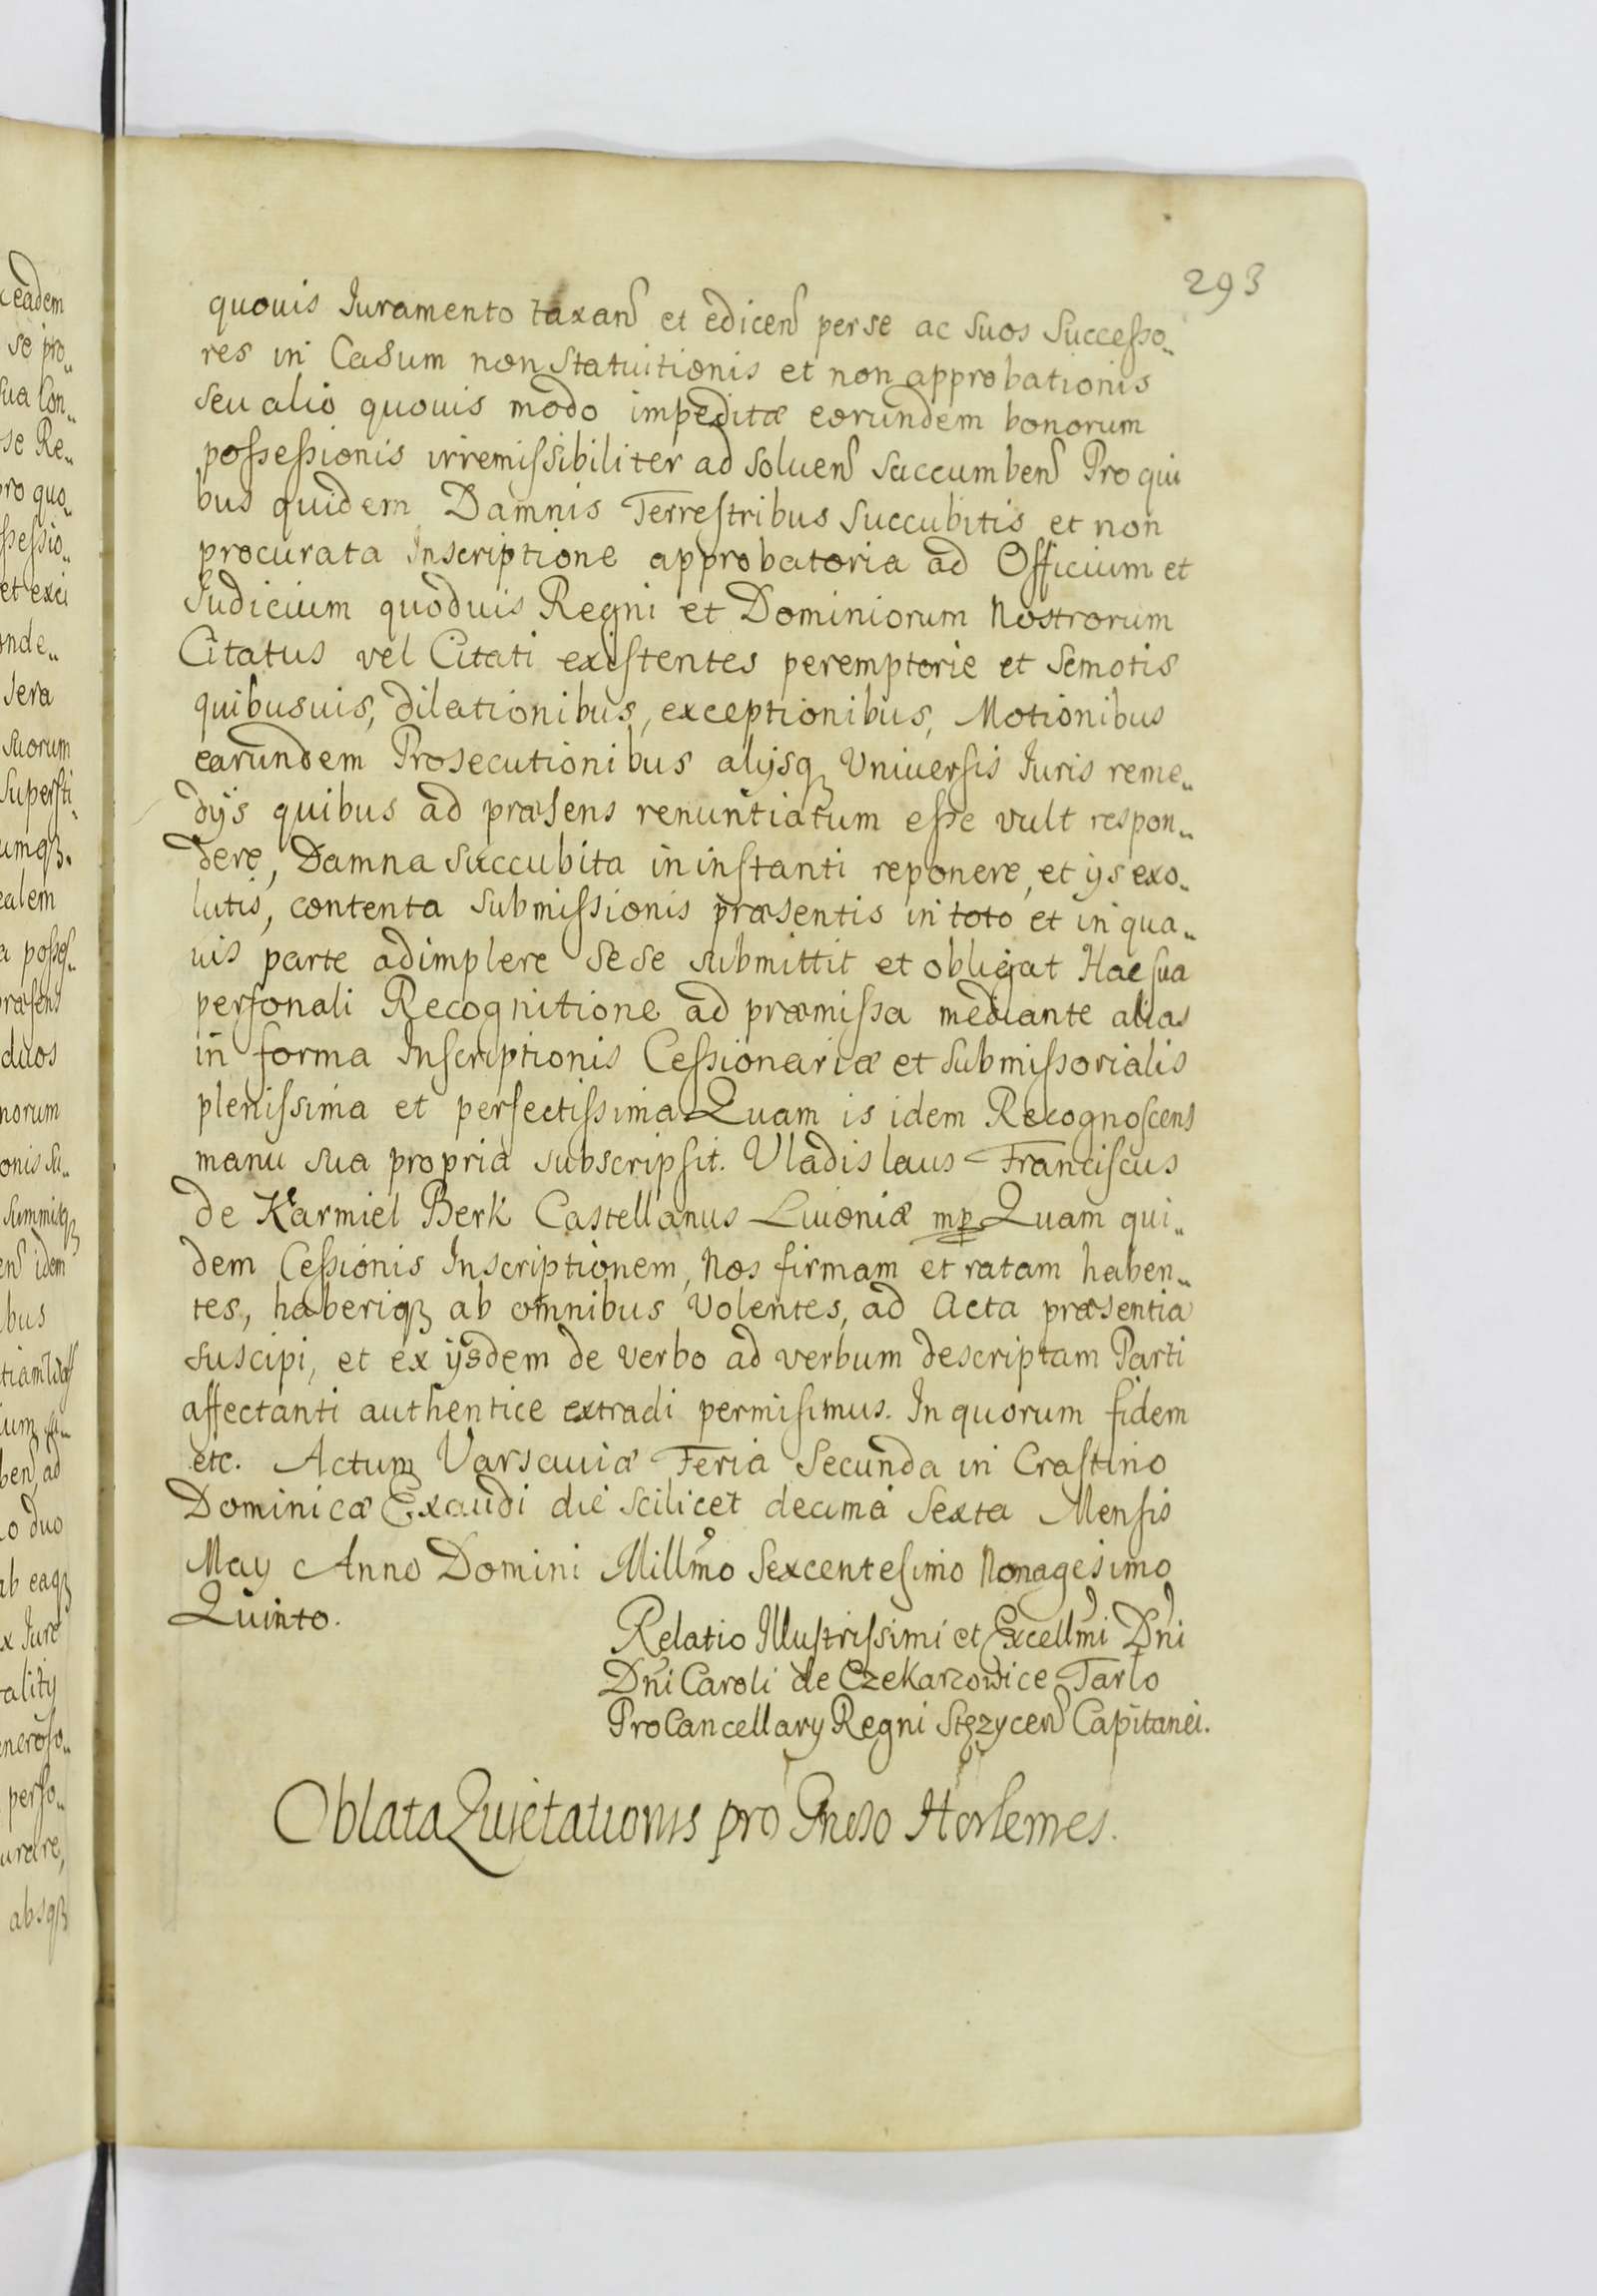 293
quouis Iuramento taxan et edicen per se ac suos Successo„
res in Casum non statuitionis et non approbationis
seu alio quouis modo impeditæ eorundem bonorum
possessionis irremissibiliter ad soluen succumben Pro qui
bus quidem Damnis Terrestribus succubitis et non
procurata Inscriptione approbatoria ad Officium et
Iudicium quoduis Regni et Dominiorum Nostrorum
Citatus vel Citati existentes peremptorie et semotis
quibusuis, dilationibus, exceptionibus, Motionibus
earundem Prosecutionibus alijsq Uniuersis Iuris reme„
dijs quibus ad præsens renuntiatum esse vult respon„
dere, Damna succubita in instanti reponere, et ijs exo„
lutis, contenta submissionis præsentis in toto et in qua„
uis parte adimplere sese submittit et obligat Hac sua
personali Recognitione ad præmissa mediante alias
in forma Inscriptionis Cessionariæ et submissorialis
plenissima et perfectissima Quam is idem Recognoscens
manu sua propria subscripsit. Vladislaus Franciscus
de Karmiel Berk Castellanus Liuoniæ mp Quam qui„
dem Cessionis Inscriptionem, Nos firmam et ratam haben„
tes, haberiqȝ ab omnibus volentes, ad Acta præsentia
suscipi, et ex ijsdem de verbo ad verbum descriptam Parti
affectanti authentice extradi permisimus. In quorum fidem
etc. Actum Varsauiæ Feria Secunda in Crastino
Dominicæ Exaudi die scilicet decima sexta Mensis
May Anno Domini Millmo Sexcentesimo Nonagesimo
Quinto.
Relatio Illustrissimi et Excellmi Dni
Dni Caroli de Czekarzowice Tarlo
ProCancellary Regni Stęzycen Capitanei.
Oblata Quietationis pro Gnoso Horlemes.
ceadem
se pro„
sua Con„
se Re„
pro quo„
ssessio„
et exci
onde„
sera
suorum
Supersti„
umqȝ.
ealem
a posses„
præsens
duos
norum
onis su„
summisqȝ
en idem
bus
ben, ad
o duo
ab eaqȝ
x Iure
ality
neroso„
perso„
urare,
absqȝ